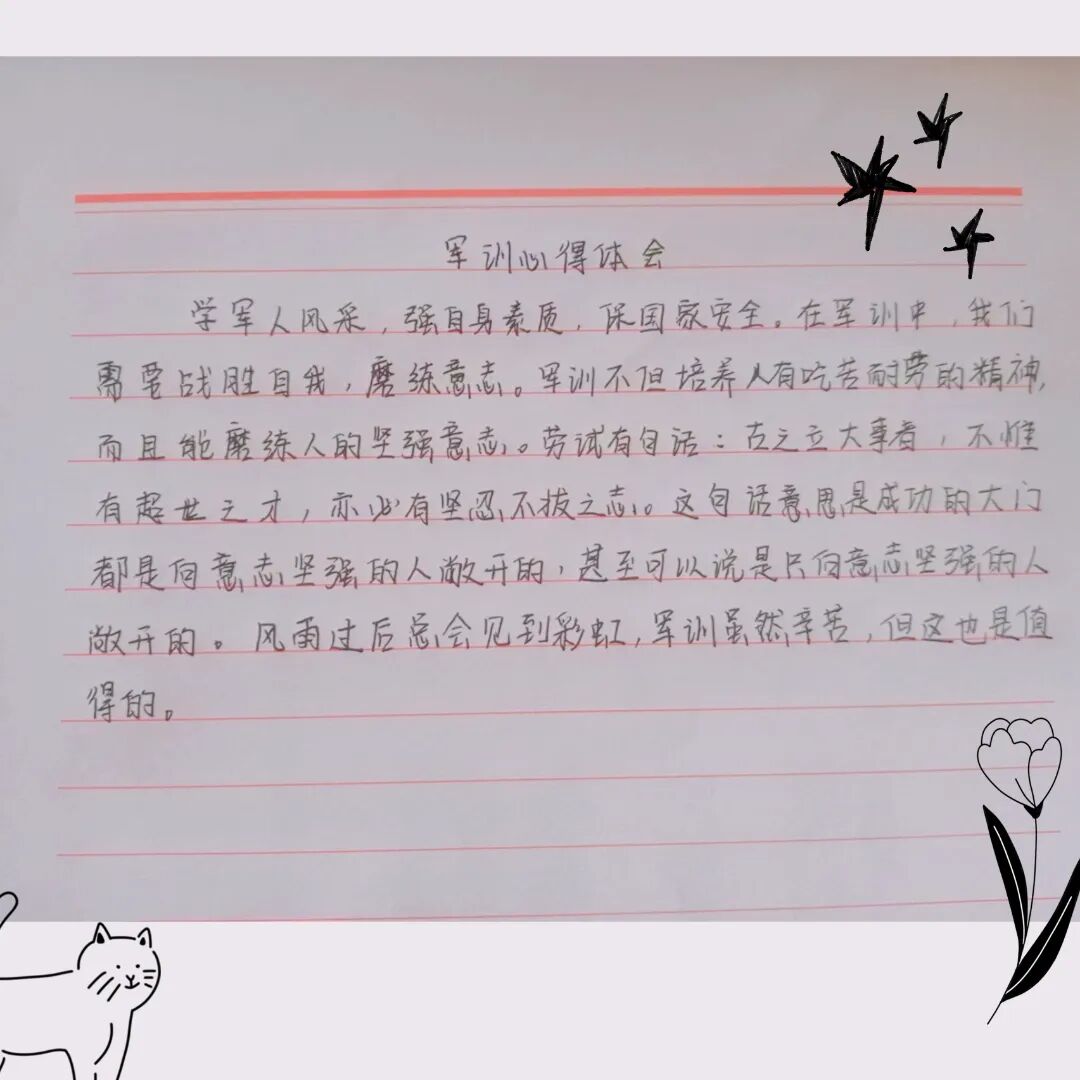 军训心得体会
学军人风采，强自身素质，保国家安全。在军训中，我们
需要战胜自我，磨练意志。军训不但培养人有吃苦耐劳的精神，
而且能磨练人的坚强意志。劳试有句话：古之立大事者，不惟
有超世之才，亦必有坚忍不拔之志。这句话意思是成功的大门
都是向意志坚强的人敞开的，甚至可以说是只向意志坚强的人
敞开的。风雨过后总会见到彩虹，军训虽然辛苦，但这也是值
得的。